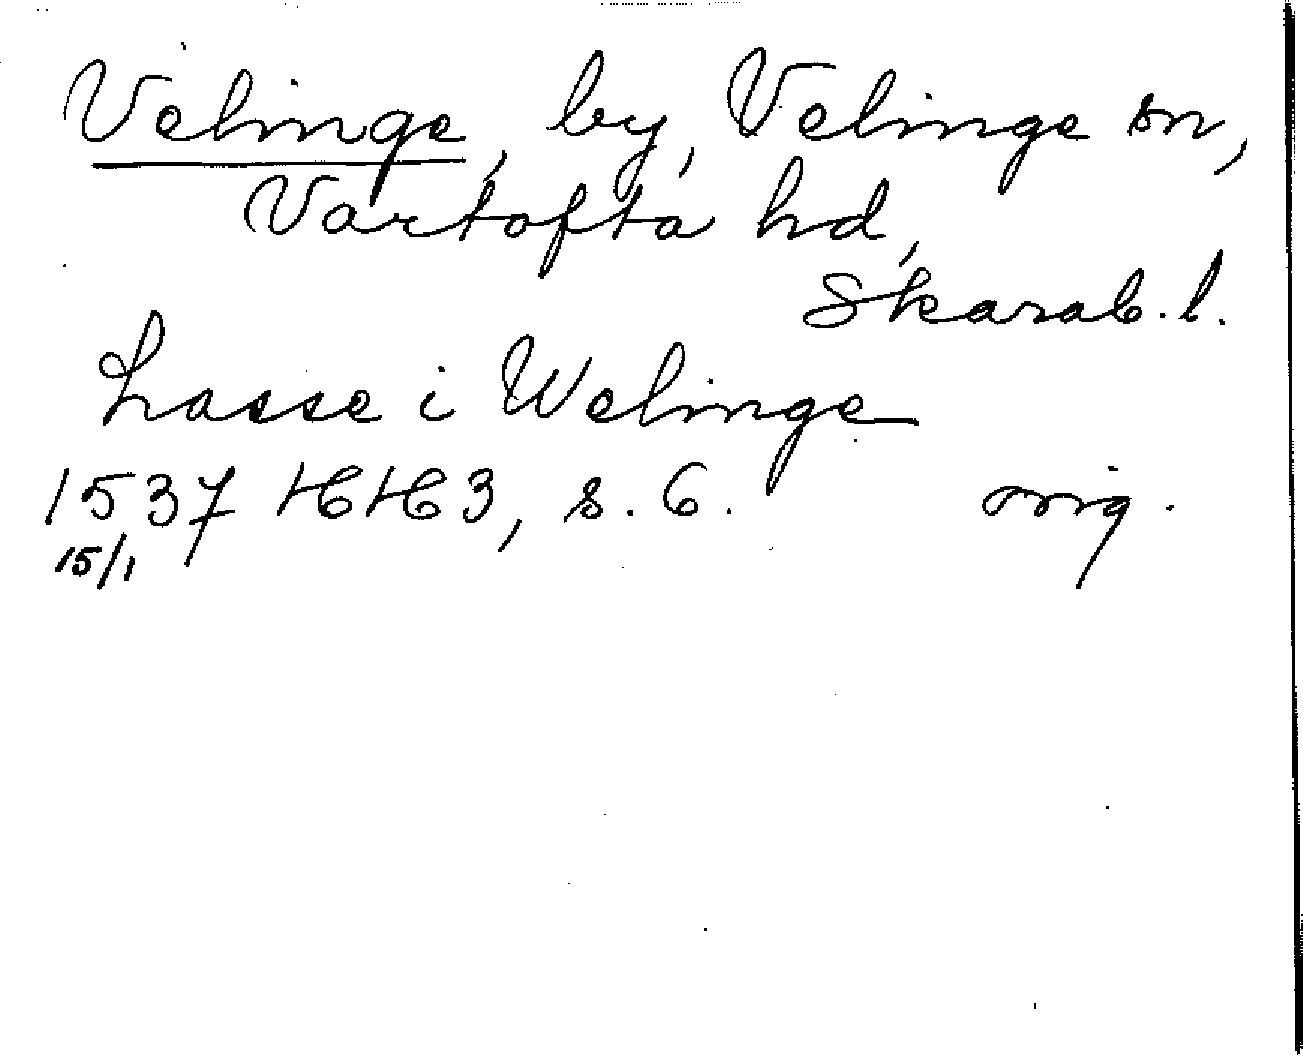 Velinge, by, Velinge sn,
Vartofta hd,
Skarab. l.
Lasse i Welinge
1537 HH 3, s. 6. orig.
15/1